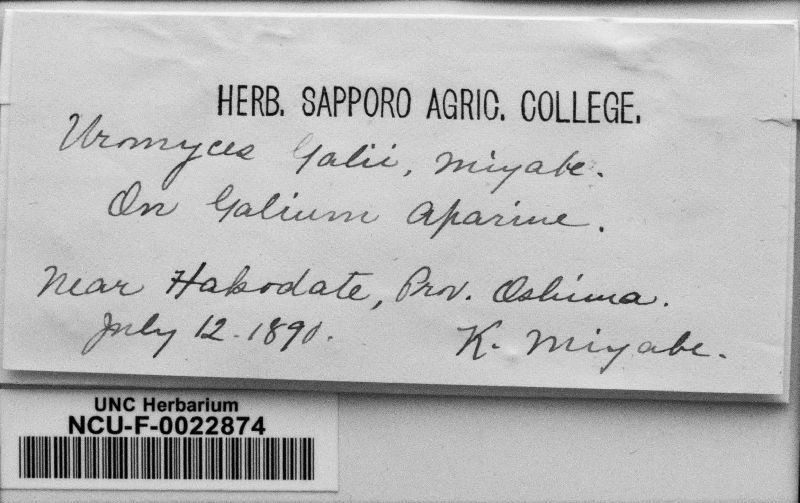 HERB. SAPPORO AGRIC. COLLEGE.
Uromyces Galii, Miyabe.
On Galium Aparine.
Near Hakodate, Prov. Oshima.
July 12. 1890. K. Miyabe.
UNC Herbarium
NCU-F-0022874